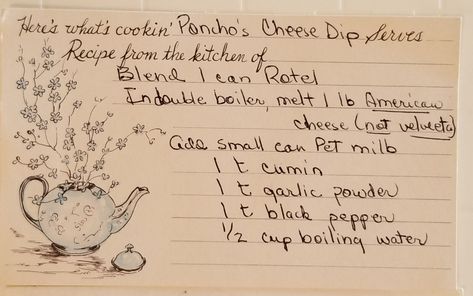 Here's what's cookin' Poncho's Cheese Dip Serves
Recipe from the kitchen of
Blend 1 can Rotel
In double boiler, melt 1 lb American
cheese (not velveeta)
Add small can Pet milk
1 t cumin
1 t garlic powder
1 t black pepper
1/2 cup boiling water